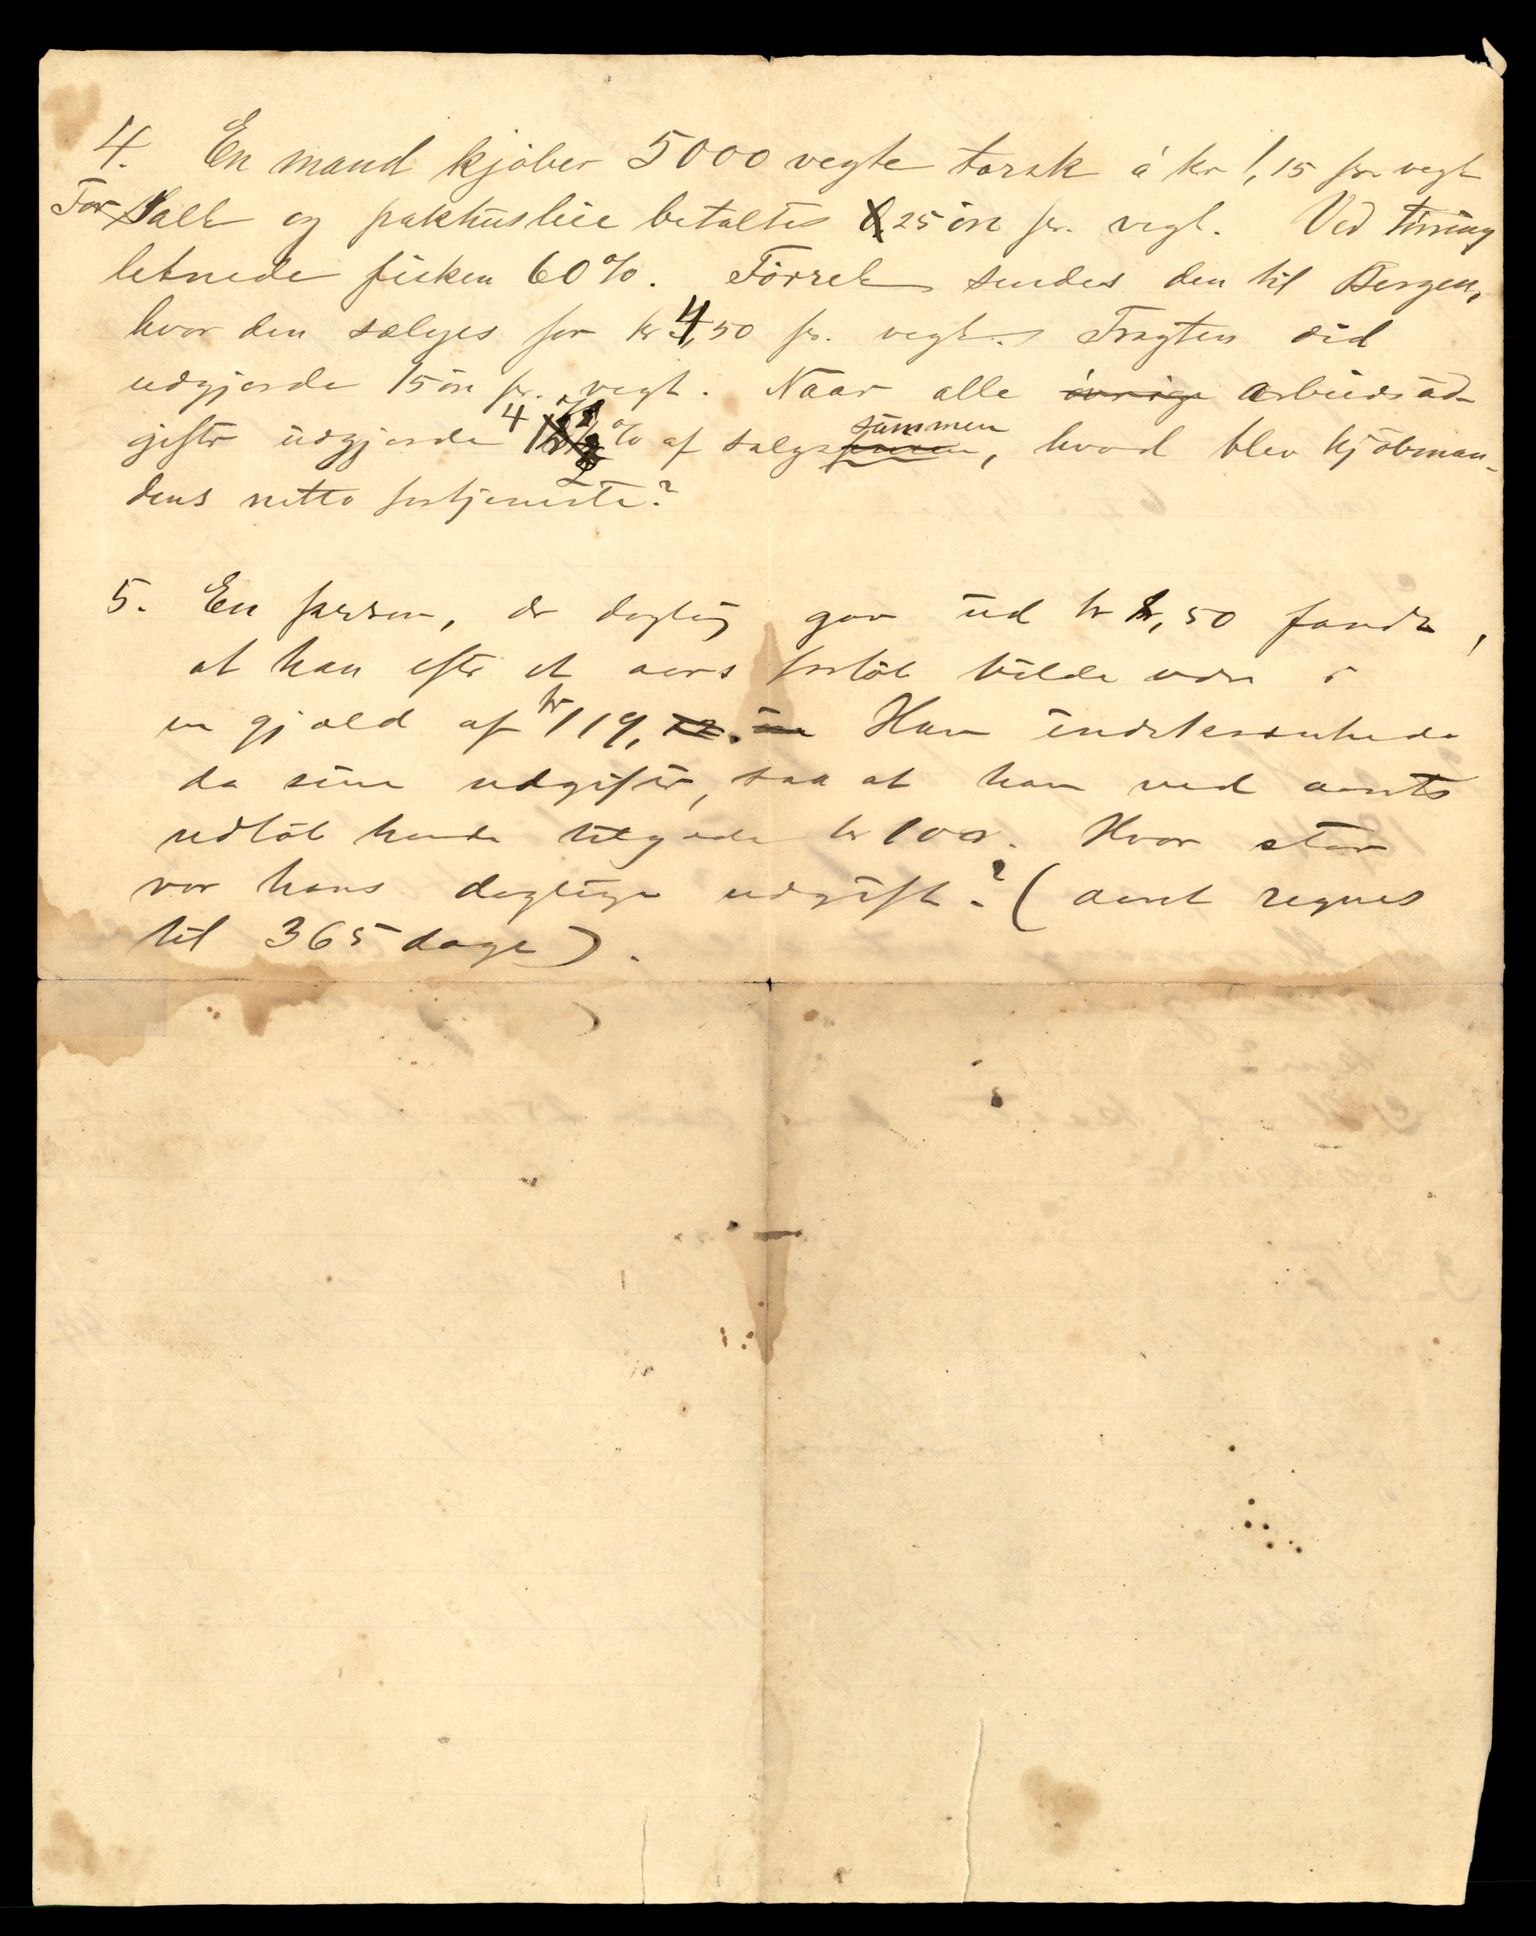 4. En mand kjøber 5000 vegte torsk á kr 1,15 pr. vegt
For Salt og pakhusleie betaltes 25 öre pr. vegt. Ved tørring
letnede fisken 60%. Törret sendes den til Bergen,
hvor den sælges for kr 4,50 pr. vegt. Fragten did
udgjorde 15 öre pr. vegt. Naar alle övrige arbeidsud-
gifter udgjorde 4 % af salgssummen, hvad blev kjöbman-
dens netto fortjeneste?
5. En person, der daglig gav ud kr ,50 fandt,
at han efter et aars forløb vilde være i
en gjæld af kr 119, Han indskrænkede
da sine udgifter, saa at han ved aarets
udløb havde tilgode kr 100. Hvor stor
var hans daglige udgift? (aaret regnes
til 365 dage).